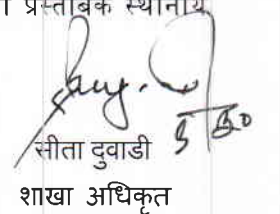 प्रस्तावक स्थानीय
सीता दुवाडी
शाखा अधिकृत